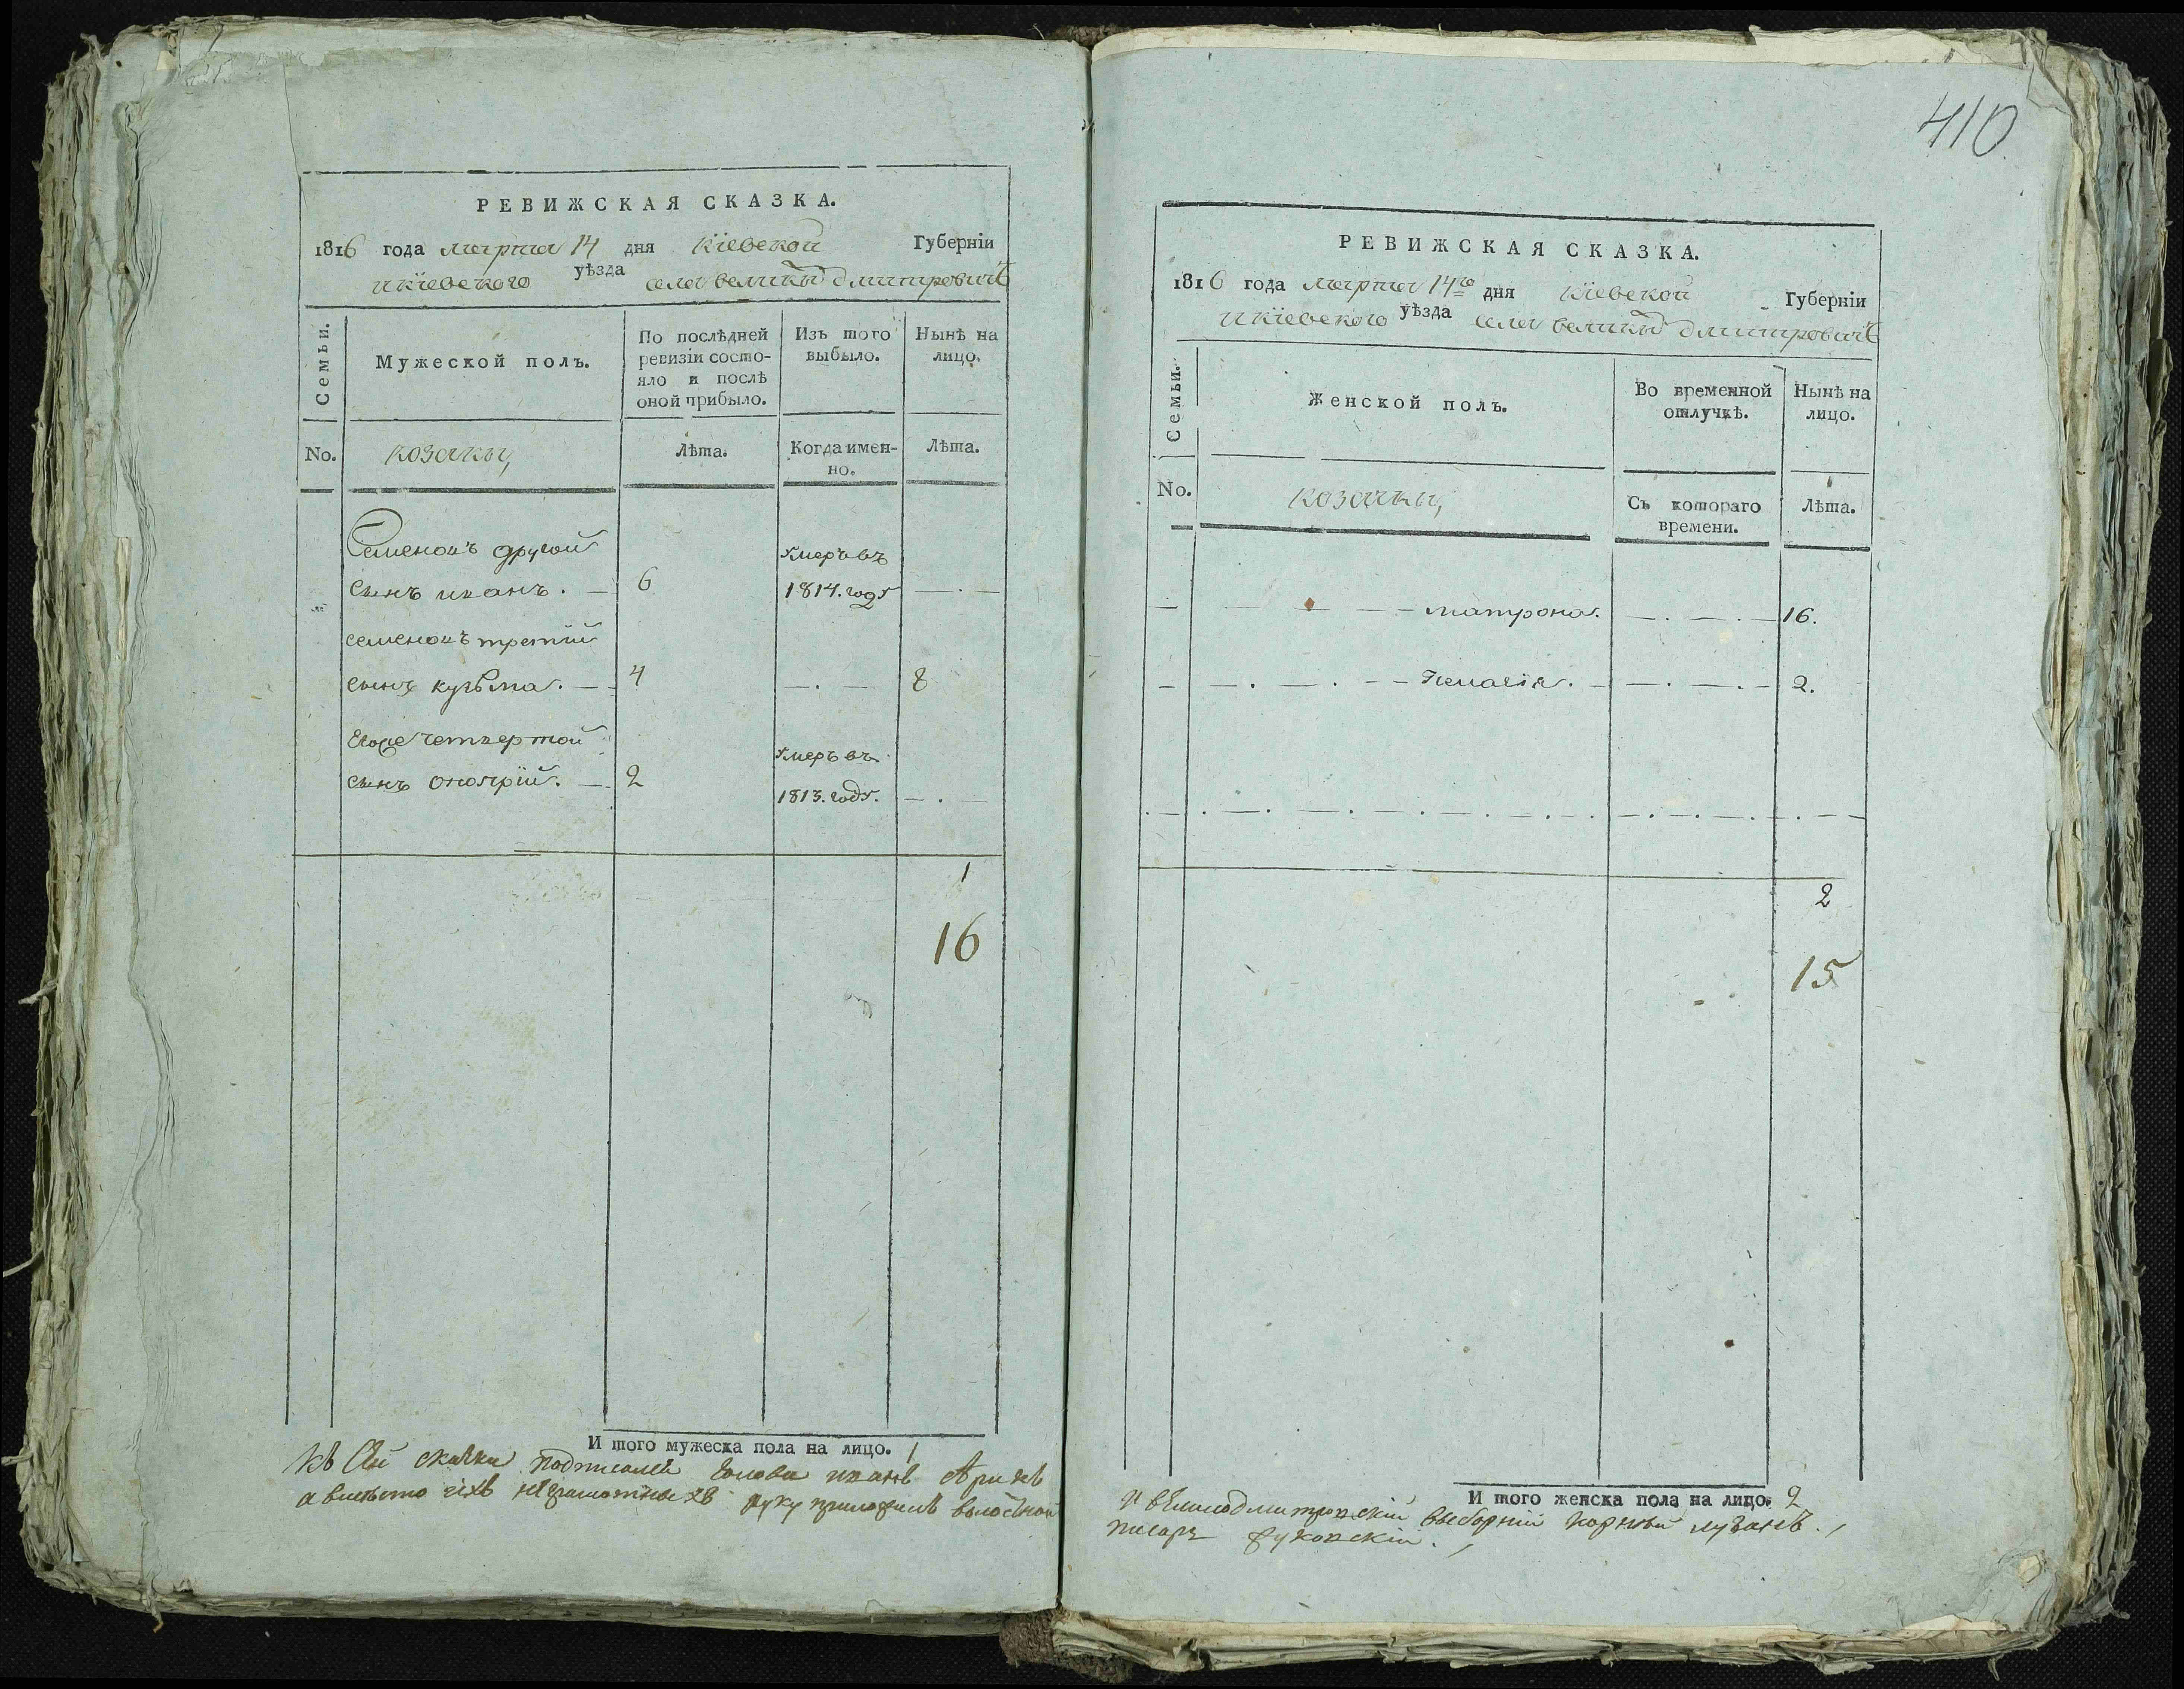 РЕВИЖСКАЯ СКАЗКА.
1816 года марта 14 дня Кіевской Губерніи
и кіевского уѣзда села великы дмитровичь
Семьи.
Мужеской полъ.
По послѣдней ревизіи состояло и послѣ оной прибыло.
Изъ того выбыло.
Нынѣ на лицо.
No.
козаки,
Лѣта.
Когда именно.
Лѣта.
Семеновъ другой
умеръ въ
сынъ иванъ. — 6 1814. году — . —
семеновъ третій
сынъ кузьма. — 4 — . — 8
Егоже четвертой
умеръ въ
сынъ онофрій. — 2
1813. году. — . —
1
16
И того мужеска пола на лицо. 1
къ сей скаски подписали голова иванъ
а вместо ихъ неграмотныхъ руку приложилъ волосной
410
РЕВИЖСКАЯ СКАЗКА.
1816 года марта 14го дня Кіевской Губерніи
и кіевского уѣзда села великы дмитровичь
Семьи.
Женской полъ.
Во временной отлучкѣ.
Нынѣ на лицо.
No.
козачки,
Съ котораго времени.
Лѣта.
матрона. 16.
Пелагія. 2.
2
15
И того женска пола на лицо. 2
и великодмитровскій выборній корнѣй лузанъ.
писарь